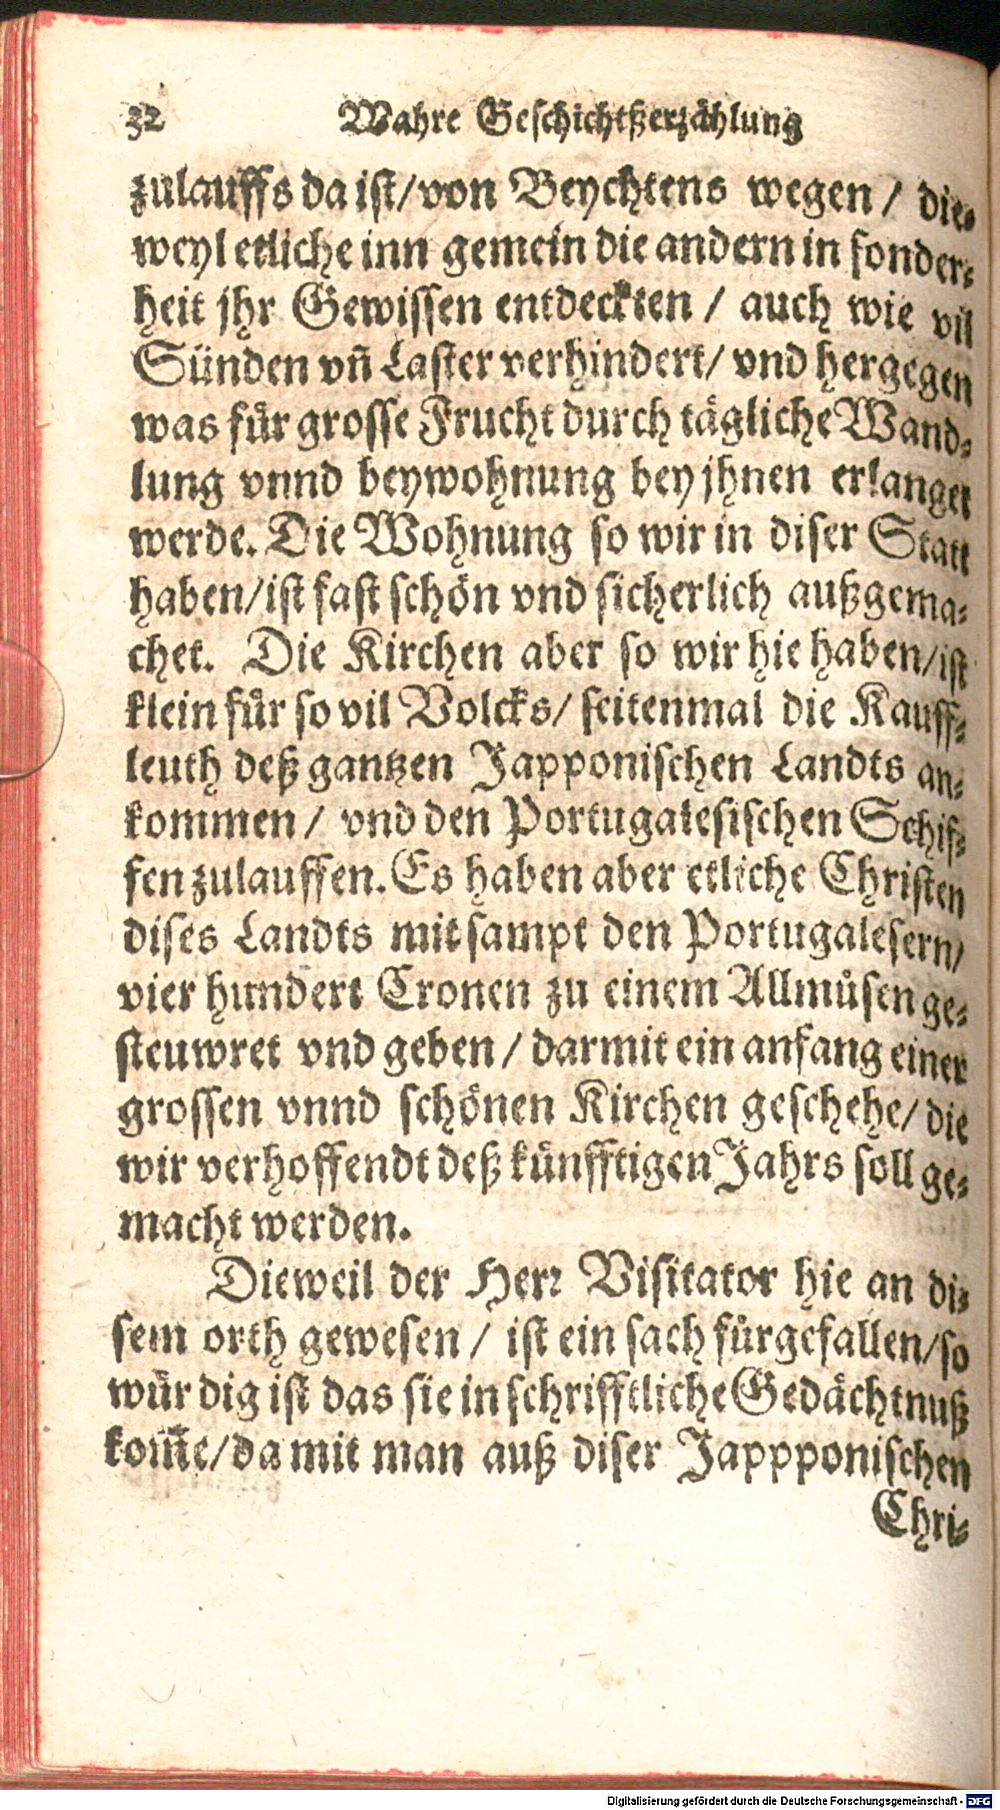 32 Wahre Geschichtßerzählung
zulauffs da ist/ von Beychtens wegen / die-
weyl etliche inn gemein die andern in sonder-
heit jhr Gewissen entdeckten / auch wie vil
Sünden vñ Laster verhindert/ vnd hergegen
was für grosse Frucht durch tägliche Wand-
lung vnnd beywohnung bey jhnen erlanget
werde. Die Wohnung so wir in diser Statt
haben/ist fast schön vnd sicherlich außgema-
chet. Die Kirchen aber so wir hie haben/ist
klein für so vil Volcks/ seitenmal die Kauff-
leuth deß gantzen Japponischen Landts an-
kommen / vnd den Portugalesischen Schif-
fen zulauffen. Es haben aber etliche Christen
dises Landts mit sampt den Portugalesern/
vier hundert Cronen zu einem Allmůsen ge-
steuwret vnd geben / darmit ein anfang einer
grossen vnnd schönen Kirchen geschehe/ die
wir verhoffendt deß künfftigen Jahrs soll ge-
macht werden.
Dieweil der Herr Visitator hie an di-
sem orth gewesen / ist ein sach fürgefallen/so
würdig ist das sie in schrifftliche Gedächtnuß
kom̃e/da mit man auß diser Jappponischen
Chri-
Digitalisierung gefördert durch die Deutsche Forschungsgemeinschaft - DFG